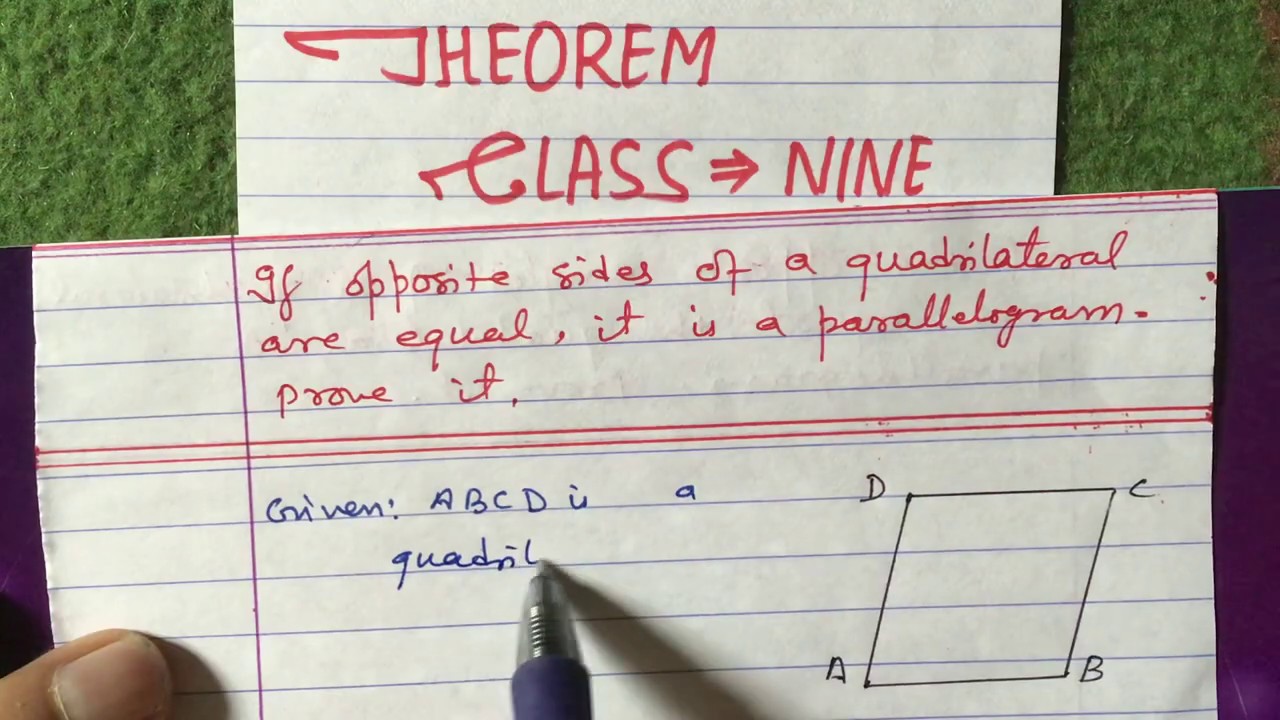 THEOREM
CLASS ⇒ NINE
If opposite sides of a quadrilateral
are equal, it is a parallelogram.
prove it.
Given: ABCD is a
quadril
D
C
A
B